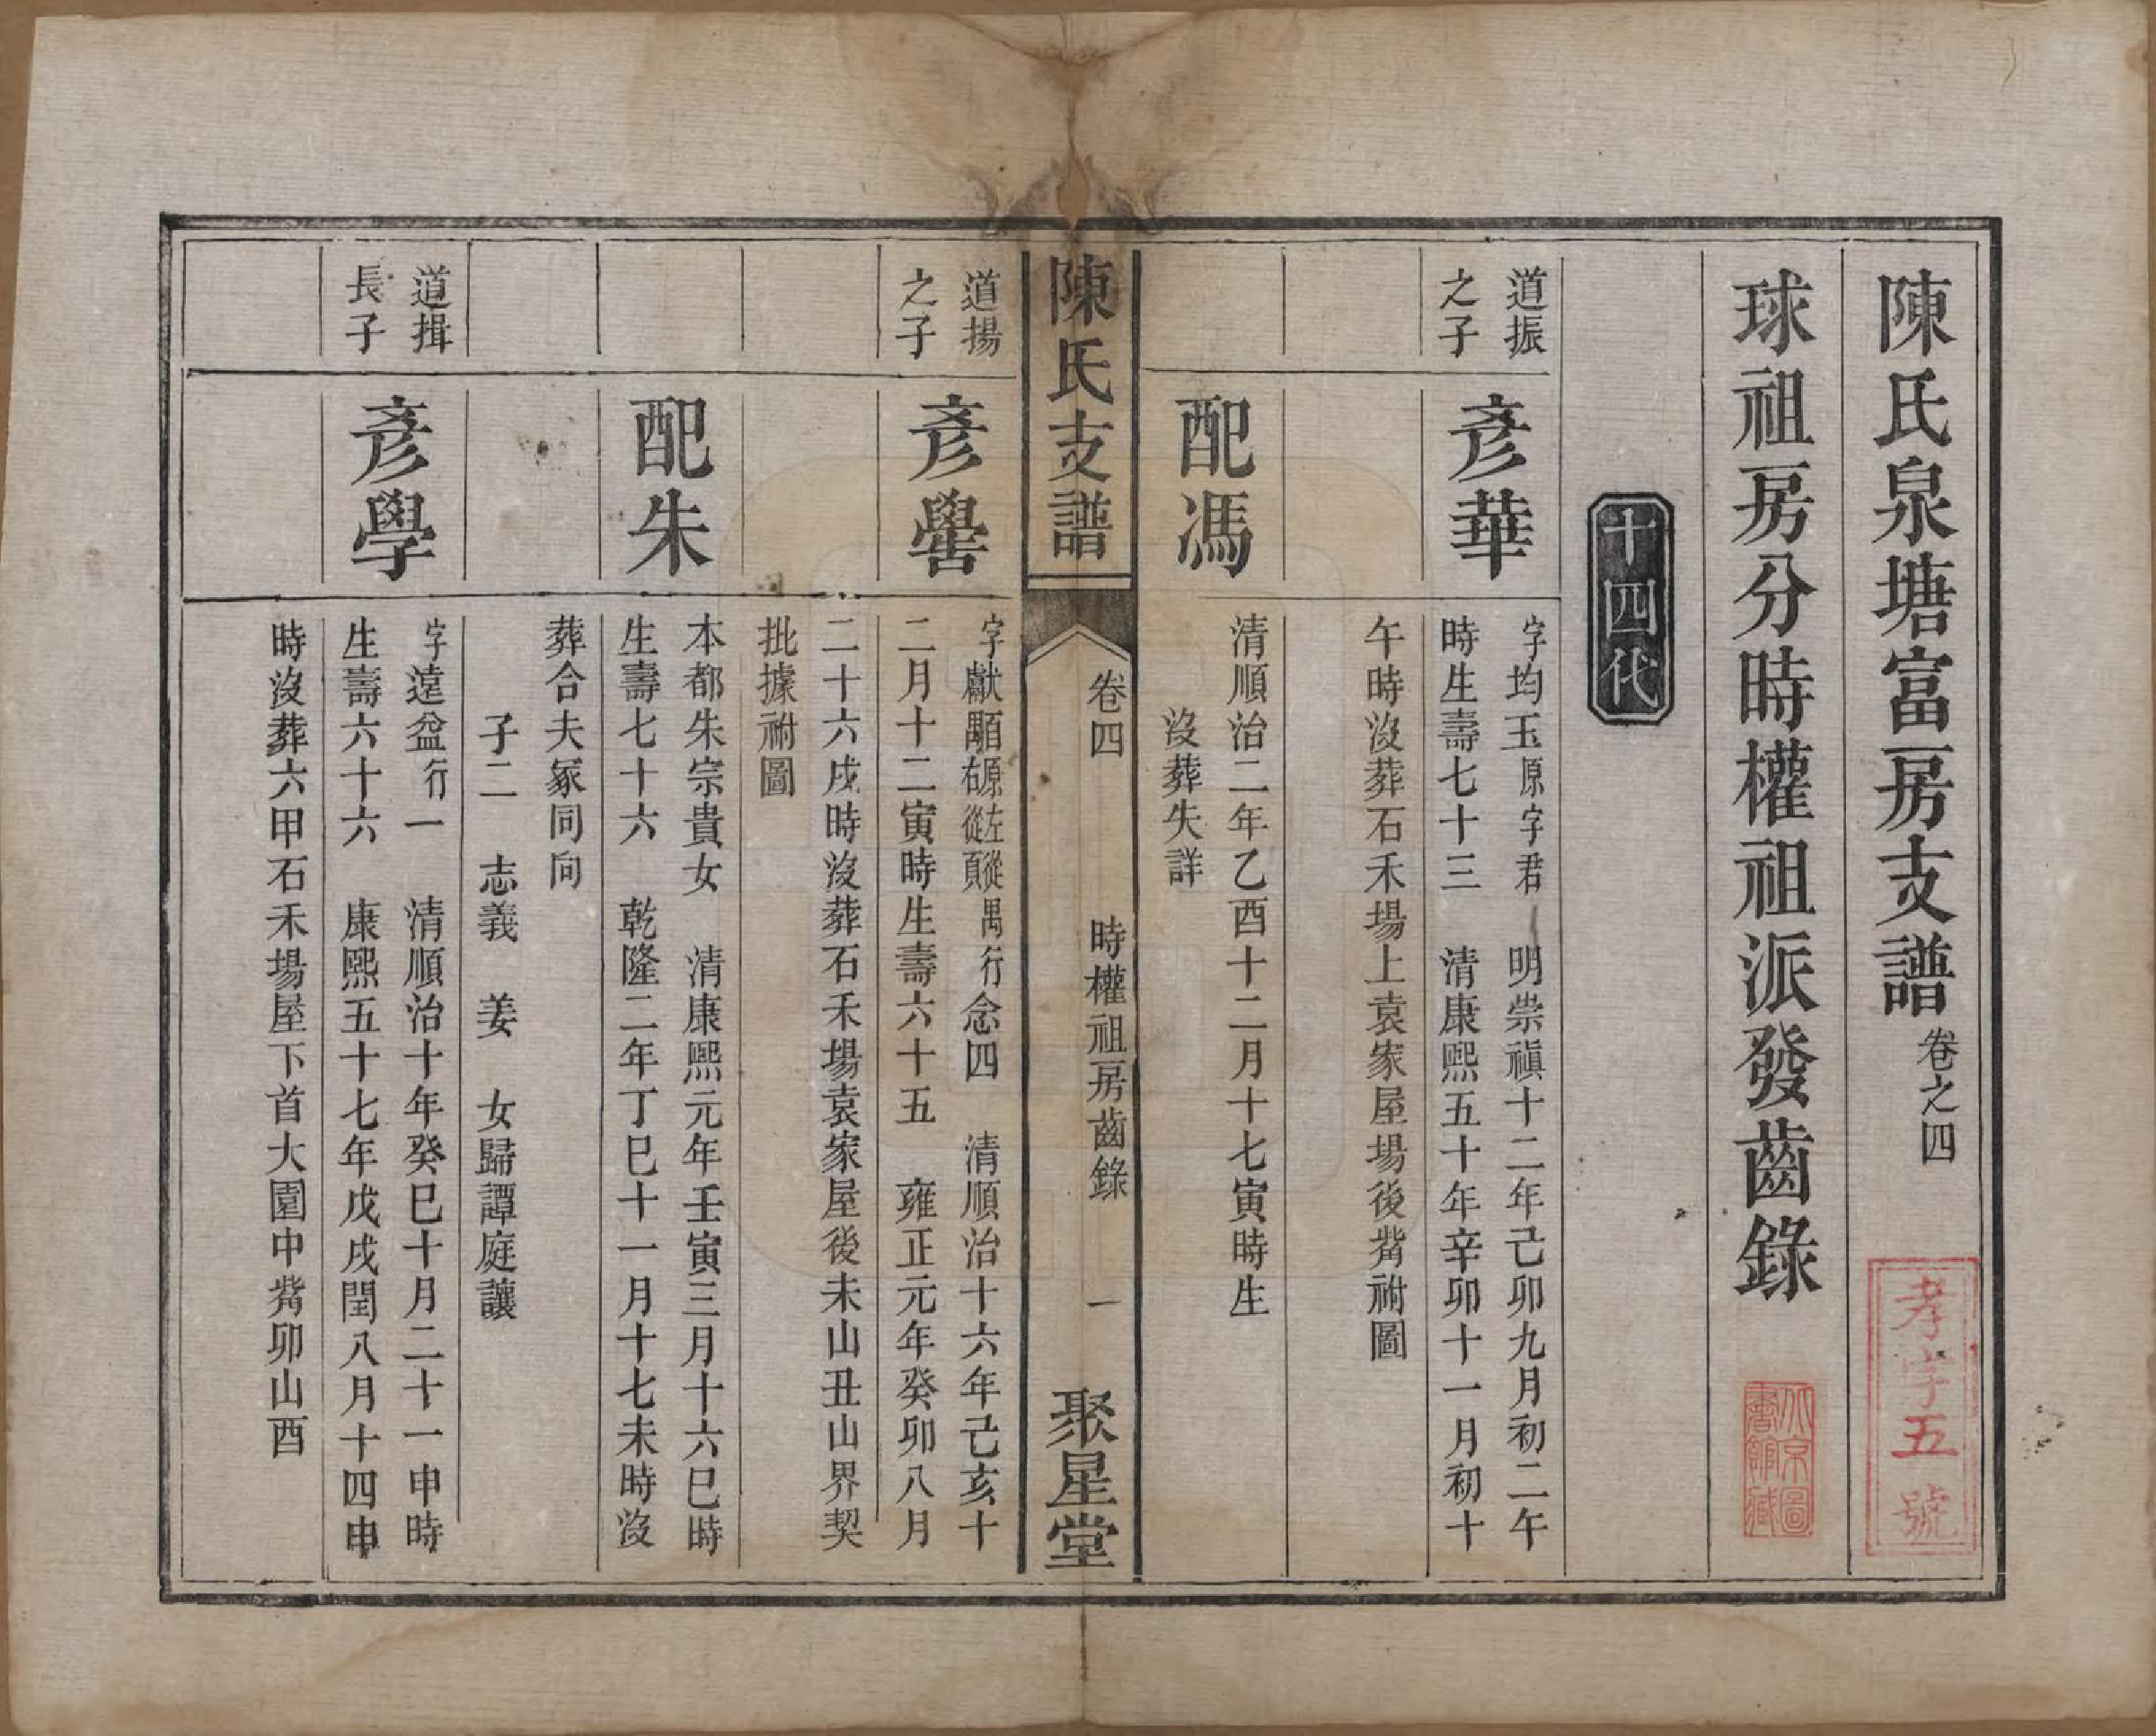 陳氏泉塘富房支譜卷之四
孝字五號
球祖房分時權祖派發齒錄
十四代
道振
之子
彥華
字均玉原字君 明崇禎十二年己卯九月初二午
時生壽七十三 清康熙五十年辛卯十一月初十
午時沒葬石禾場上袁家屋場後嘴祔圖
配馮
清順治二年乙酉十二月十七寅時生
沒葬失詳
陳氏支譜
卷四
時權祖房齒錄
一
聚星堂
道揚
之子
彥嚳
字獻顒原左從禺右從頁行念四 清順治十六年己亥十
二月十二寅時生壽六十五 雍正元年癸卯八月
二十六戌時沒葬石禾場袁家屋後未山丑山界契
批據祔圖
配朱
本都朱宗貴女 清康熙元年壬寅三月十六巳時
生壽七十六 乾隆二年丁巳十一月十七未時沒
葬合夫冢同向
子二 志義 姜 女歸譚庭讓
道揖
長子
彥學
字遠盆行一 清順治十年癸巳十月二十一申時
生壽六十六 康熙五十七年戊戌閏八月十四申
時沒葬六甲石禾場屋下首大園中嘴卯山酉